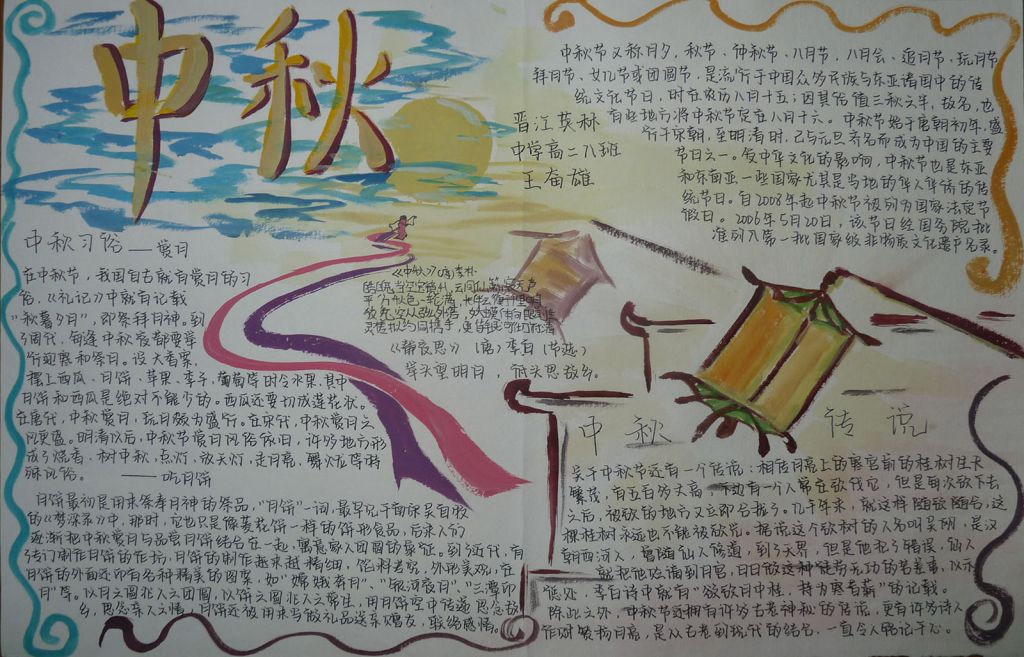 中秋
中秋节又称月夕，秋节、仲秋节、八月节、八月会、追月节、玩月节
拜月节、女儿节或团圆节，是流行于中国众多民族与东亚诸国中的传
统文化节日，时在农历八月十五；因其恰值三秋之半，故名，也
有些地方将中秋节定在八月十六。中秋节始于唐朝初年，盛
行于宋朝，至明清时，已与元旦齐名而成为中国的主要
节日之一。受中华文化的影响，中秋节也是东亚
和东南亚一些国家尤其是当地的华人华侨的传
统节日。自2008年起中秋节被列为国家法定节
假日。2006年5月20日，该节日经国务院批
准列入第一批国家级非物质文化遗产名录。
晋江英林
中学高二八班
王奋雄
中秋习俗——赏月
在中秋节，我国自古就有赏月的习
俗，《礼记》中就有记载
“秋暮夕月”，即祭拜月神。到
了周代，每逢中秋夜都要举
行迎寒和祭月。设大香案，
摆上西瓜、月饼、苹果、李子、葡萄等时令水果，其中
月饼和西瓜是绝对不能少的。西瓜还要切成莲花状。
在唐代，中秋赏月，玩月颇为盛行。在宋代，中秋赏月之
风更盛。明清以后，中秋节赏月风俗依旧，许多地方形
成了烧香、树中秋、点灯、放天灯、走月亮、舞火龙等特
殊风俗。 ——吃月饼
月饼最初是用来祭奉月神的祭品，“月饼”一词，最早见于南宋吴自牧
的《梦粱录》中，那时，它也只是像菱花饼一样的饼形食品，后来人们
逐渐把中秋赏月与品尝月饼结合在一起，寓意家人团圆的象征。到了近代，有
了专门制作月饼的作坊，月饼的制作越来越精细，馅料考究，外形美观，在
月饼的外面还印有各种精美的图案，如“嫦娥奔月”、“银河夜月”、“三潭印
月”等。以月之圆兆人之团圆，以饼之圆兆人之常生，用月饼寄中传递思念故
乡，思念亲人之情，月饼还被用来当做礼品送亲赠友，联络感情。
《中秋》 李朴
皓魄当空宝镜升，云间仙籁寂无声
平分秋色一轮满，长伴云衢千里明
《静夜思》（唐）李白（节选）
举头望明月，低头思故乡。
中秋传说
关于中秋节还有一个传说：相传月亮上的寒宫前的桂树生长
繁茂，有五百多丈高，下边有一个人常在砍伐它，但是每次砍下去
之后，被砍的地方又立即合拢了。几千年来，就这样随砍随合，这
棵桂树永远也不能被砍光。据说这个砍树的人名叫吴刚，是汉
朝西河人，曾随仙人修道，到了天界，但是他犯了错误，仙人
就把他贬谪到月宫，日日做这种徒劳无功的苦差事，以示
惩处。李白诗中就有“欲斫月中桂，持为寒者薪”的记载。
除此之外，中秋节还拥有许多古老神秘的传说，更有许多诗人
作对赞扬月亮，是从古老到现代的结合，一直令人铭记于心。